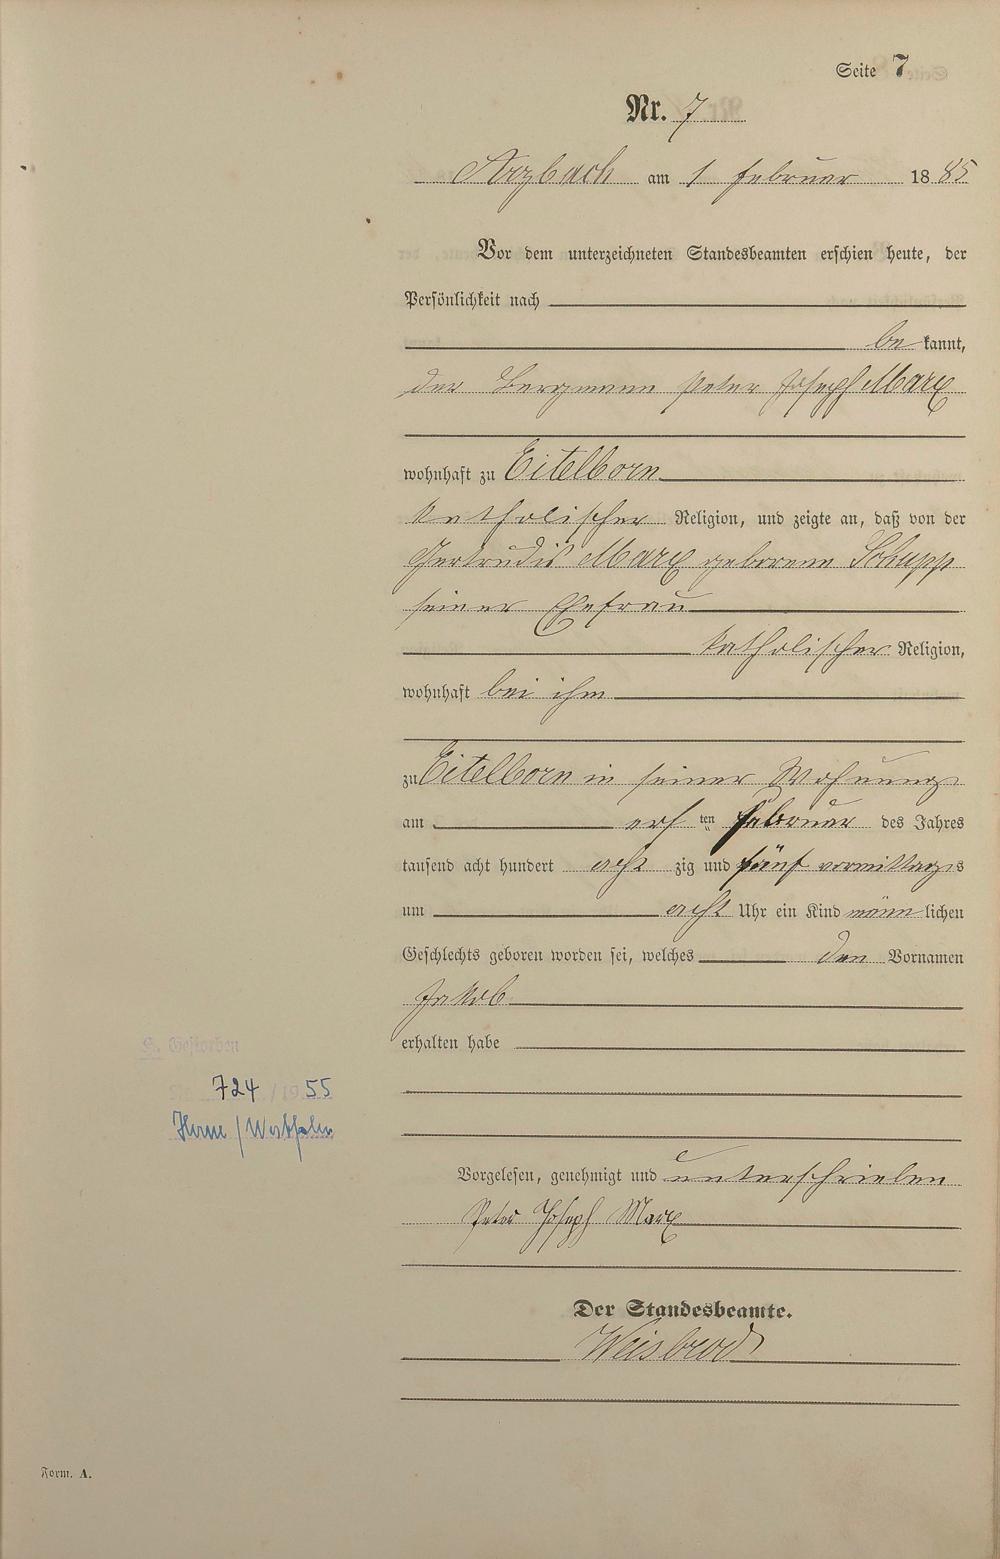 Seite 7
Nr. 7
Arzbach am 1 Februar 1885
Vor dem unterzeichneten Standesbeamten erschien heute, der
Persönlichkeit nach
be kannt,
der Bergmann Peter Joseph Marx
wohnhaft zu Eitelborn
katholischer Religion, und zeigte an, daß von der
Gertrudis Marx geborene Schupp
seiner Ehefrau
katholischer Religion,
wohnhaft bei ihm
zu Eitelborn in seiner Wohnung
am ersten Februar des Jahres
tausend acht hundert acht zig und fünf vormittags
um acht Uhr ein Kind männ lichen
Geschlechts geboren worden sei, welches den Vornamen
Jakob
erhalten habe
S. Gestorben
Nr. 724/1955
Herne/Westfalen
Vorgelesen, genehmigt und unterschrieben
Peter Joseph Marx
Der Standesbeamte.
Weisbrod
Form. A.